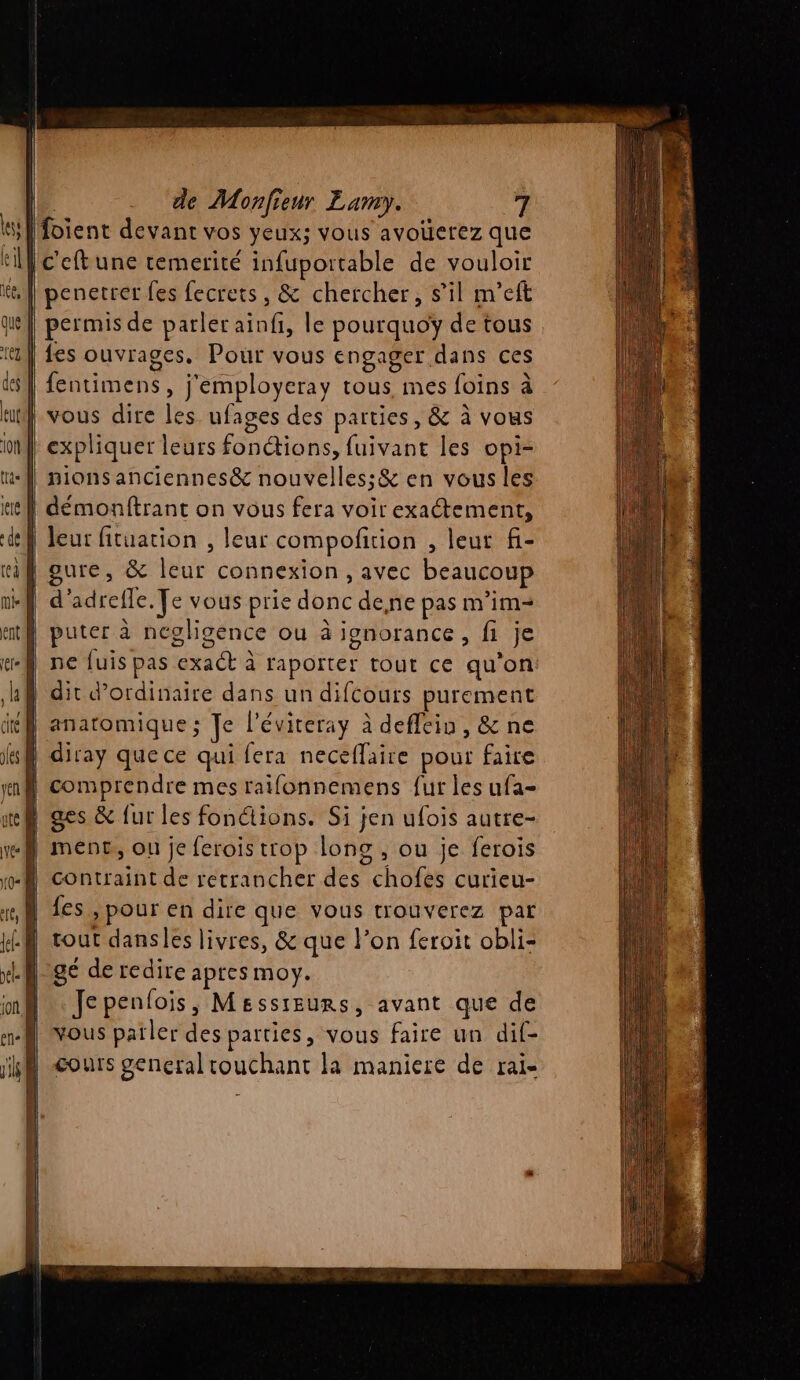 de Monſieur Lamy. 7
ſoient devant vos yeux; vous avoüerez que
c'eſt une temerité inſuportable de vouloir
penetrer ſes ſecrets, & chercher, s'il m'eſt
permis de parler ainſi, le pourquoy de tous
ſes ouvrages. Pour vous engager dans ces
ſentimens, j'employeray tous mes ſoins à
vous dire les uſages des parties, & à vous
expliquer leurs fonctions, ſuivant les opi-
nions anciennes & nouvelles; & en vous les
démonſtrant on vous fera voir exactement,
leur ſituation, leur compoſition, leur fi-
gure, & leur connexion, avec beaucoup
d'adreſſe. Je vous prie donc de ne pas m'im-
puter à negligence ou à ignorance, ſi je
ne ſuis pas exact à raporter tout ce qu'on
dit d'ordinaire dans un diſcours purement
anatomique; Je l'éviteray à deſſein, & ne
diray que ce qui ſera neceſſaire pour faire
comprendre mes raiſonnemens ſur les uſa-
ges & ſur les fonctions. Si jen uſois autre-
ment, ou je ſerois trop long, ou je ſerois
contraint de retrancher des choſes curieu-
ſes, pour en dire que vous trouverez par
tout dans les livres, & que l'on ſeroit obli-
gé de redire apres moy.
Je penſois, MESSIEURS, avant que de
vous parler des parties, vous faire un diſ-
cours general touchant la maniere de rai-